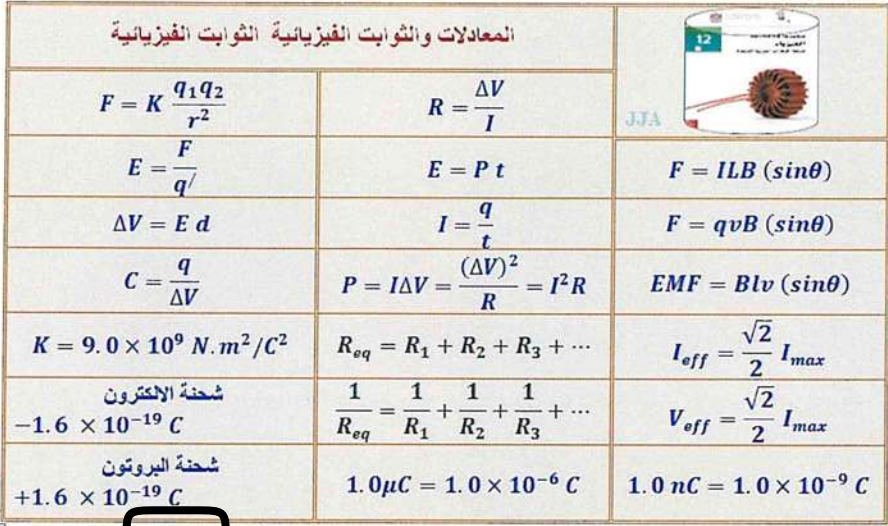 المعادلات والثوابت الفيزيائية الثوابت الفيزيائية
12
JJA
F = K q₁q₂/r²
R = ΔV/I
E = F/q′
E = P t
F = ILB (sinθ)
ΔV = E d
I = q/t
F = qvB (sinθ)
C = q/ΔV
P = IΔV = (ΔV)²/R = I²R
EMF = Blv (sinθ)
K = 9.0 × 10⁹ N.m²/C²
R_eq = R₁ + R₂ + R₃ + ⋯
I_eff = √2/2 I_max
شحنة الالكترون
−1.6 × 10⁻¹⁹ C
1/R_eq = 1/R₁ + 1/R₂ + 1/R₃ + ⋯
V_eff = √2/2 I_max
شحنة البروتون
+1.6 × 10⁻¹⁹ C
1.0μC = 1.0 × 10⁻⁶ C
1.0 nC = 1.0 × 10⁻⁹ C